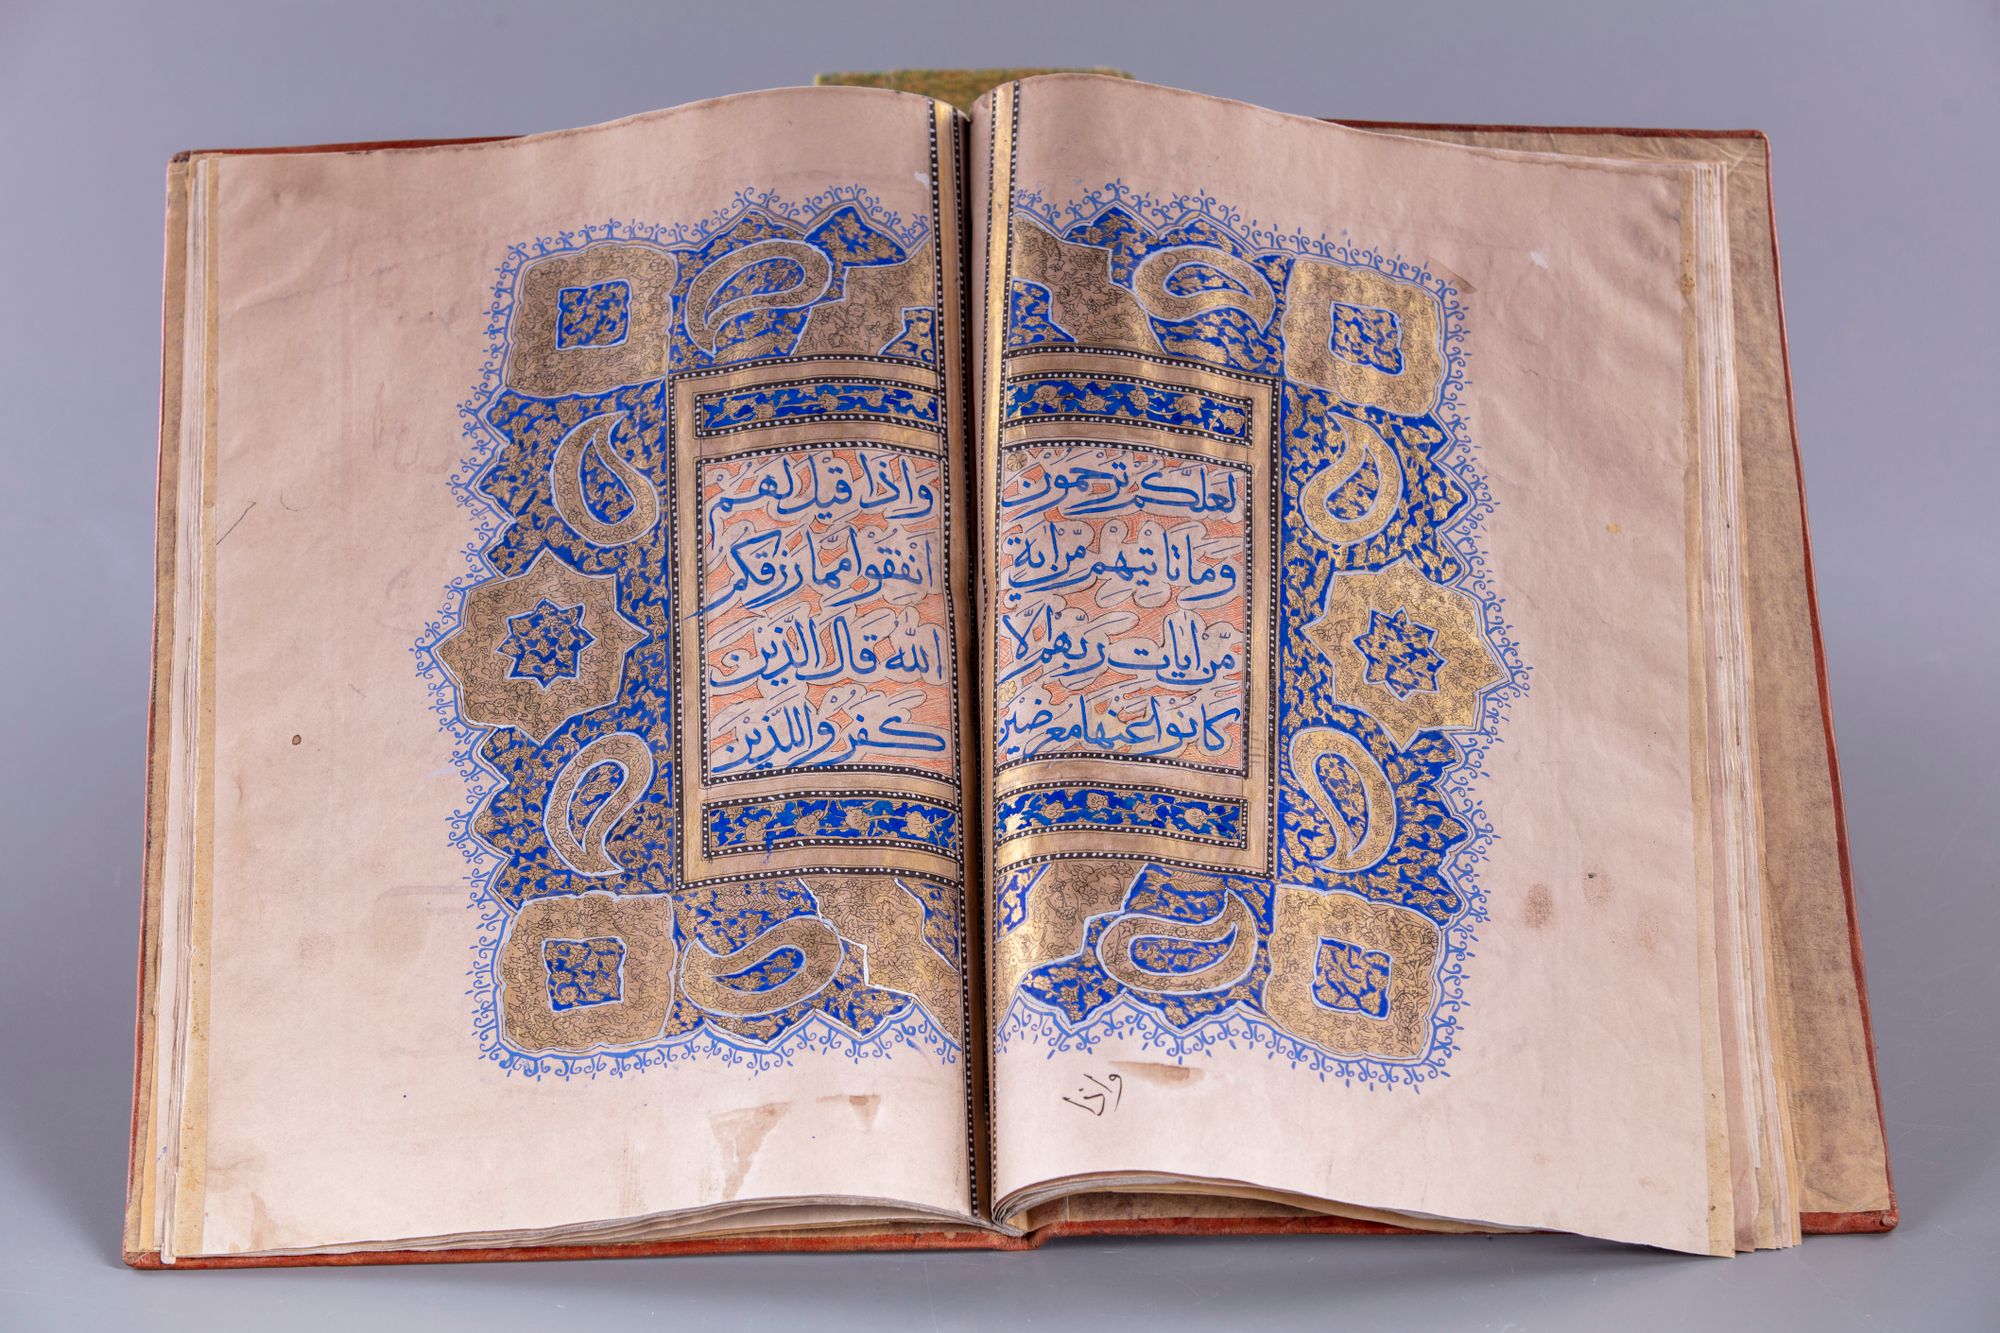 لعلكم ترحمون
وما تاتيهم مّن اية
مّن ايات ربّهم الّا
كانوا عنها معرضين
واذا
وَاِذَا قيْل لهُمْ
انْفِقُوا ممّا رزقكم
الله قَال الَّذيْن
كفرُوْا للَّذيْن